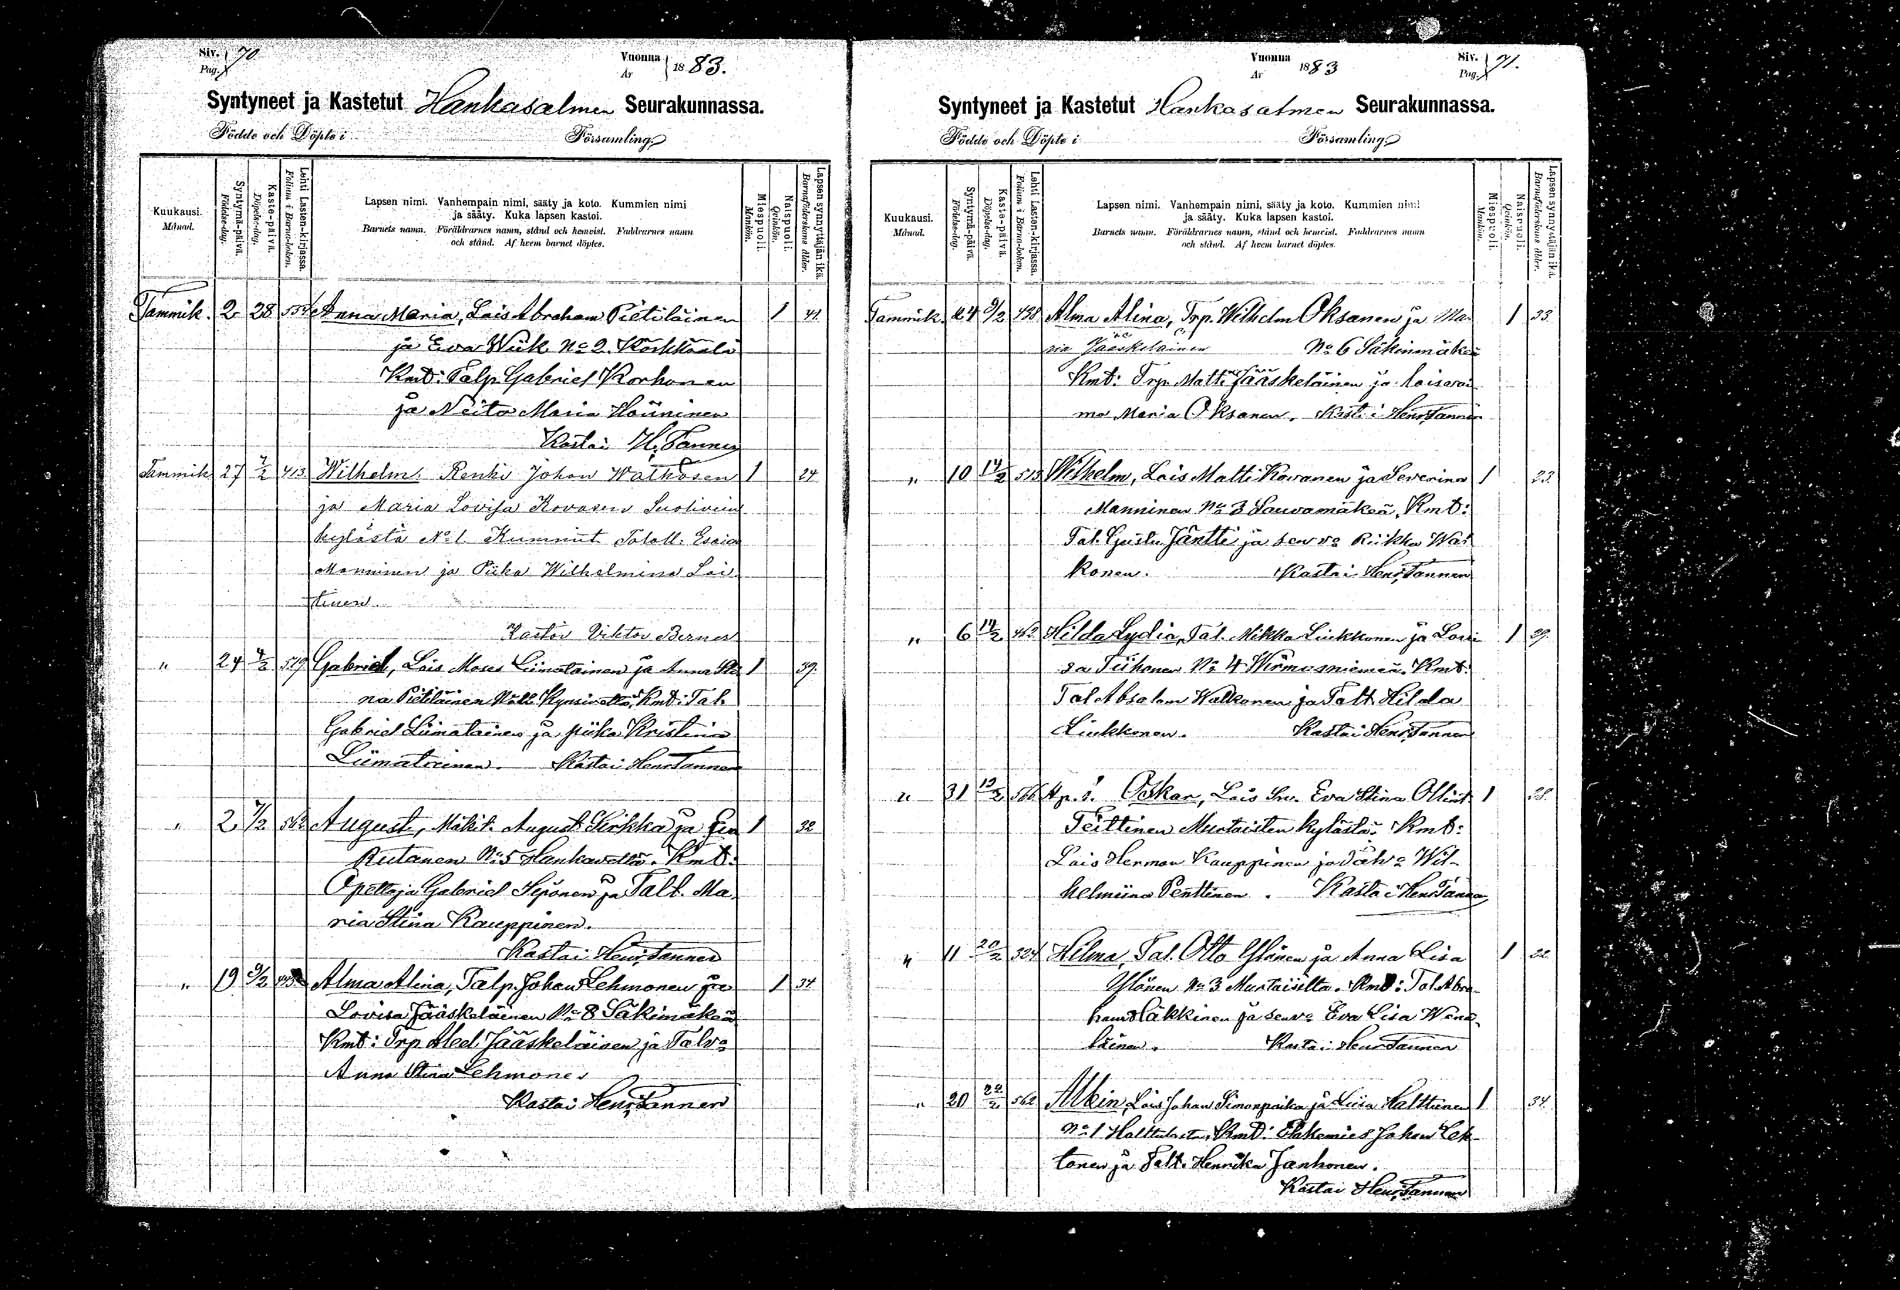 Siv. Pag. 70.
Vuonna År 1883.
Syntyneet ja Kastetut Hankasalmen Seurakunnassa.
Födde och Döpte i Församling.
Kuukausi. Månad.
Syntymä-päivä. Födelse-dag.
Kaste-päivä. Döpelse-dag.
Lehti Lasten-kirjassa. Folium i Barna-boken.
Lapsen nimi. Vanhempain nimi, sääty ja koto. Kummien nimi
ja sääty. Kuka lapsen kastoi.
Barnets namn. Föräldrarnes namn, stånd och hemvist. Faddrarnes namn
och stånd. Af hvem barnet döptes.
Miespuoli. Mankön.
Naispuoli. Qvinkön.
Lapsen synnyttäjän ikä. Barnaföderskans ålder.
Tammik. 2. 28 Anna Maria, Lois Abraham Pietiläinen 1 41.
ja Eva Wiik No 2. Kärkkäälä
Kmt: Talp. Gabriel Korhonen
ja Neito Maria Häninen
Kastai H. Tanner
Tammik 27 7/2 413. Wilhelm. Renki Johan Watkosen 1 24
ja Maria Lovisa Rovasen Suolivein
kylästä No 1. Kummit Taloll. Esaia
Manninen ja Piika Wilhelmina Lai
tinen.
Kastoi Viktor Berner
" 24 4/2 519 Gabriel, Lois Moses Liimatainen ja Anna Sti 1 39.
na Pietiläinen Kynsivettä, Kmt: Tal.
Gabriel Liimatainen ja piika Kristina
Liimatainen. Kastai Henr. Tanner
" 2. 7/2 562 August, Mäkit. August Sirkka ja Eva 1 32
Rutanen No 5 Hankavettä. Kmt:
Opettaja Gabriel Hepönen ja Talt. Ma
ria Stina Kauppinen.
Kastai Henr. Tanner
" 19 9/2 Alma Alina, Talp. Johan Lehmonen ja 1 34
Lovisa Jääskeläinen No 8 Säkinmäkeä
Kmt: Trp. Abel Jääskeläinen ja Talva
Anna Stina Lehmonen
Kastai Henr. Tanner
Vuonna År 1883
Siv. Pag. 71.
Syntyneet ja Kastetut Hankasalmen Seurakunnassa.
Födde och Döpte i Församling.
Kuukausi. Månad.
Syntymä-päivä. Födelse-dag.
Kaste-päivä. Döpelse-dag.
Lehti Lasten-kirjassa. Folium i Barna-boken.
Lapsen nimi. Vanhempain nimi, sääty ja koto. Kummien nimi
ja sääty. Kuka lapsen kastoi.
Barnets namn. Föräldrarnes namn, stånd och hemvist. Faddrarnes namn
och stånd. Af hvem barnet döptes.
Miespuoli. Mankön.
Naispuoli. Qvinkön.
Lapsen synnyttäjän ikä. Barnaföderskans ålder.
Tammik. 24 9/2 438 Alma Alina, Trp. Wilhelm Oksanen ja Ma 1 33.
ria Jääskeläinen No 6 Säkinmäkeä
Kmt: Trp. Matti Jääskeläinen ja loisvai
mo Maria Oksanen. Kastai Henr. Tanner
" 10 14/2 513 Wilhelm, Lois Matti Kovanen ja Severina 1 23.
Manninen No 3 Sauvamäkeä, Kmt:
Tal. Gustu Jäntti ja senva Riikka Wat
konen. Kastai Henr. Tanner
" 6 14/2 462 Hilda Lydia, Tal. Mikko Liukkonen ja Lovi 1 29.
sa Tiihonen No 4 Wirmasniemeä. Kmt:
Tal Absalom Watkonen ja Talt. Hilda
Liukkonen. Kastai Henr. Tanner
" 31 566 Ap. s. Oskar, Lois Eva Stina Ollint. 1 28.
Teittinen Murtoisten kylästä. Kmt:
Lois Herman Kauppinen ja Talva Wil-
helmiina Penttinen. Kastai Henr. Tanner
" 11 20/2 324 Hilma, Tal. Otto Ylönen ja Anna Lisa 1 22.
Ylönen No 3 Murtoiselta. Kmt: Tal Abra-
ham Häkkinen ja senva Eva Lisa Wenä-
läinen. Kastai Henr. Tanner
" 20 22/2 562 Albin, Lois Johan Simonpoika ja Liisa Halttunen 1 34.
No 1 Kmt: Johan Leh-
tonen ja Talt. Henrika Janhonen.
Kastai Henr. Tanner